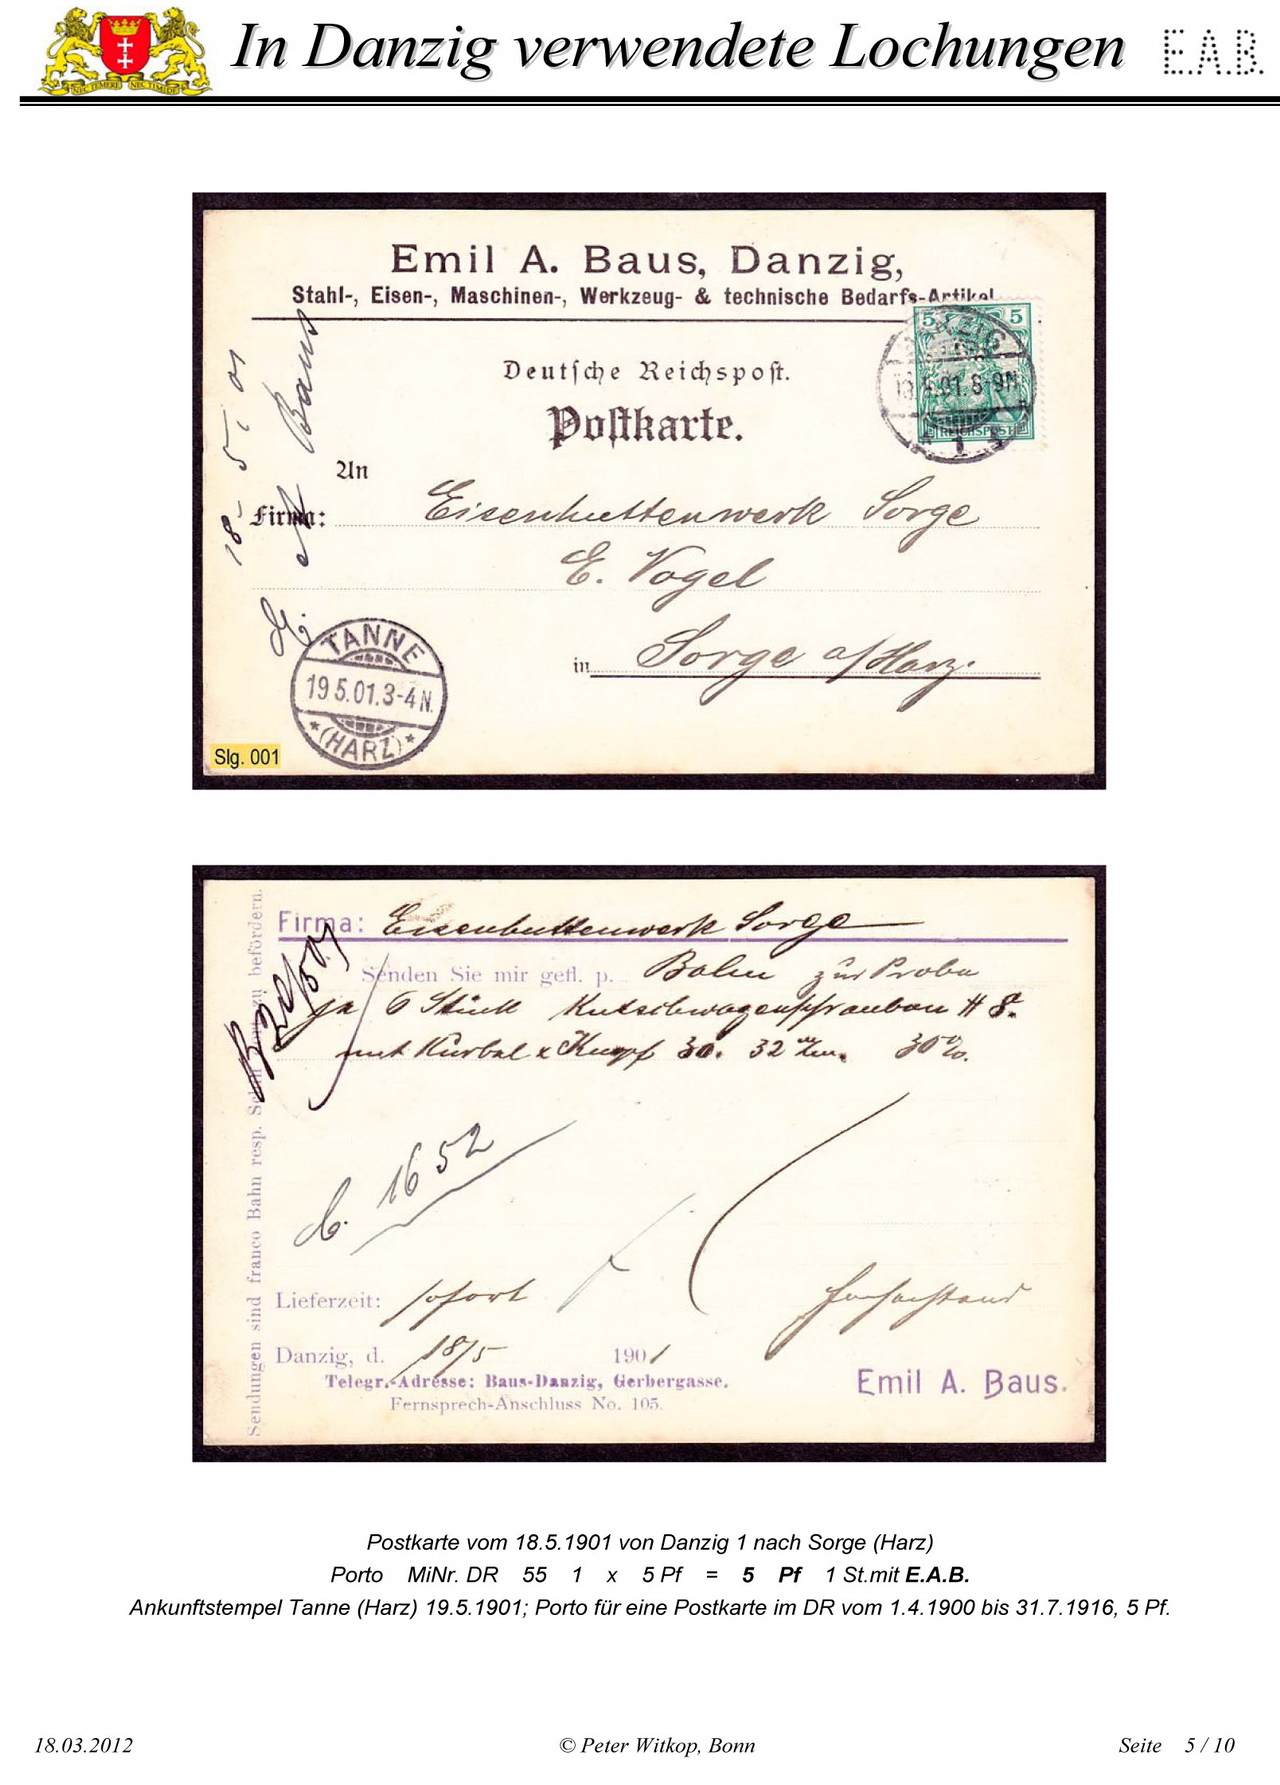 In Danzig verwendete Lochungen E.A.B.
NEC TEMERE NEC TIMIDE
Emil A. Baus, Danzig,
Stahl-, Eisen-, Maschinen-, Werkzeug- & technische Bedarfs-Artikel
5 5
DANZIG
18.5.01.8-9N
1
REICHSPOST
Deutsche Reichspost.
Postkarte.
18-5.01
A Baus
An
Firma: Eisenhuttenwerk Sorge
E. Vogel
in Sorge a/Harz.
TANNE
19.5.01.3-4N.
*(HARZ)*
Slg. 001
Firma: Eisenhuttenwerk Sorge
Senden Sie mir gefl. p. Bahn zur Probe
je 6 Stück Kutschwagenschrauben # 8.
mit Kurbel & Knopf 30. 32 30%.
1652
Lieferzeit: sofort
Danzig, d. 18/5 1901
Telegr.-Adresse: Baus-Danzig, Gerbergasse.
Fernsprech-Anschluss No. 105.
Emil A. Baus.
Sendungen sind franco Bahn resp. zu befördern.
Postkarte vom 18.5.1901 von Danzig 1 nach Sorge (Harz)
Porto MiNr. DR 55 1 x 5 Pf = 5 Pf 1 St.mit E.A.B.
Ankunftstempel Tanne (Harz) 19.5.1901; Porto für eine Postkarte im DR vom 1.4.1900 bis 31.7.1916, 5 Pf.
18.03.2012 © Peter Witkop, Bonn Seite 5 / 10